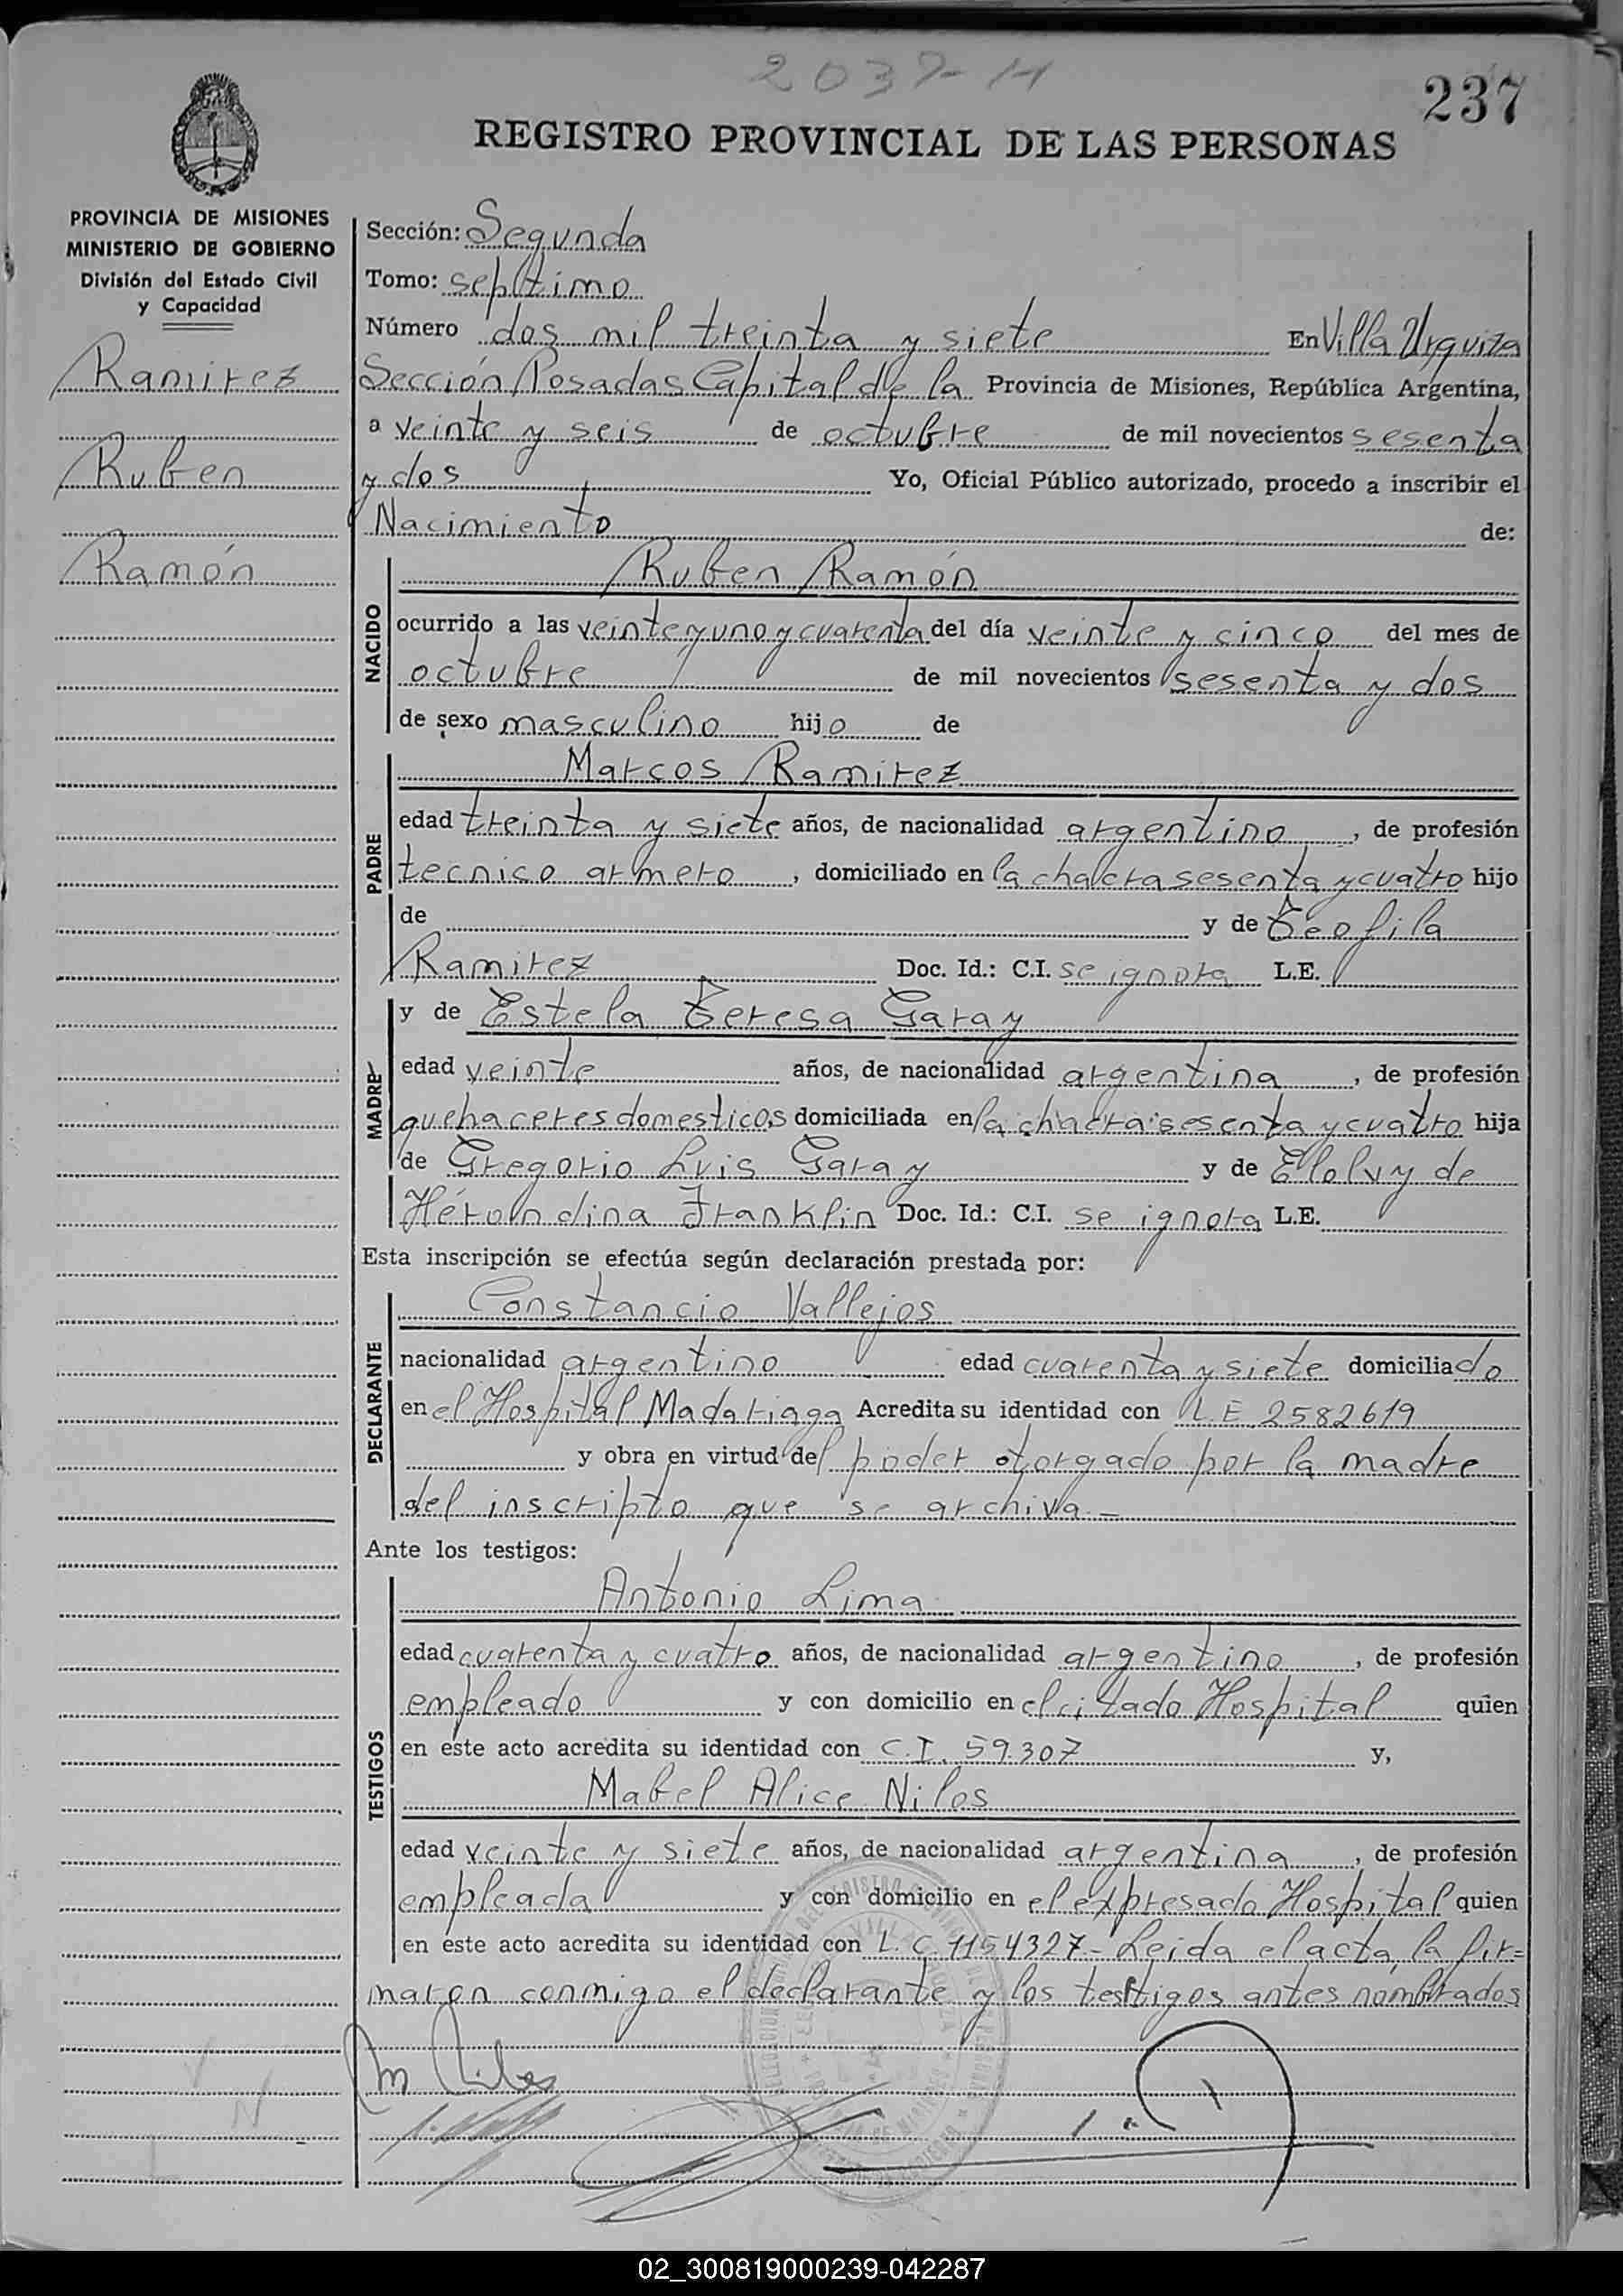 2037-H
237
REGISTRO PROVINCIAL DE LAS PERSONAS
PROVINCIA DE MISIONES
MINISTERIO DE GOBIERNO
División del Estado Civil
y Capacidad
Ramirez
Ruben
Ramón
Sección: Segunda
Tomo: septimo
Número dos mil treinta y siete En Villa Urquiza
Sección Posadas Capital de la Provincia de Misiones, República Argentina,
a veinte y seis de octubre de mil novecientos sesenta
y dos Yo, Oficial Público autorizado, procedo a inscribir el
Nacimiento de:
NACIDO
Ruben Ramón
ocurrido a las veinte y uno y cuarenta del día veinte y cinco del mes de
octubre de mil novecientos sesenta y dos
de sexo masculino hijo de
PADRE
Marcos Ramirez
edad treinta y siete años, de nacionalidad argentino, de profesión
tecnico armero, domiciliado en la chacra sesenta y cuatro hijo
de y de Teofila
Ramirez Doc. Id.: C.I. se ignora L.E.
MADRE
y de Estela Teresa Garay
edad veinte años, de nacionalidad argentina, de profesión
quehaceres domesticos domiciliada en la chacra sesenta y cuatro hija
de Gregorio Luis Garay y de de
Franklin Doc. Id.: C.I. se ignora L.E.
Esta inscripción se efectúa según declaración prestada por:
DECLARANTE
Constancio Vallejos
nacionalidad argentino edad cuarenta y siete domiciliado
en el Hospital Madariaga Acredita su identidad con L.E. 2582619
y obra en virtud del poder otorgado por la madre
del inscripto que se archiva.-
Ante los testigos:
TESTIGOS
Antonio Lima
edad cuarenta y cuatro años, de nacionalidad argentino, de profesión
empleado y con domicilio en el citado Hospital quien
en este acto acredita su identidad con C.I. 59.307 y,
Mabel Alice Nilos
edad veinte y siete años, de nacionalidad argentina, de profesión
empleada y con domicilio en el expresado Hospital quien
en este acto acredita su identidad con L.C. 1154327- Leida el acta, la fir=
maron conmigo el declarante y los testigos antes nombrados
02_300819000239-042287